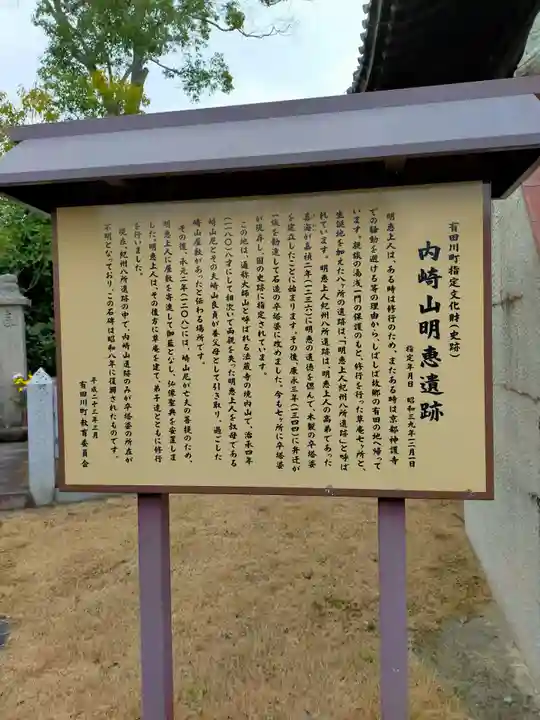 有田川町指定文化財(史跡)
内崎山明恵遺跡
指定年月日 昭和三九年一二月一日
明恵上人は、ある時は修行のため、またある時は京都神護寺
での騒動を避ける等の理由から、しばしば故郷の有田の地へ帰って
います。親族の湯浅一門の保護のもと、修行を行った草庵七ヶ所と、
生誕地を加えた八ヶ所の遺跡は「明恵上人紀州八所遺跡」と呼ば
れています。明恵上人紀州八所遺跡は、明恵上人の高弟であった
喜海が嘉禎二年(一二三六)に明恵の遺徳を偲んで、木製の卒塔婆
を建立したことに始まります。その後、康永三年(一三四四)に弁迁が
一族を勧進して石造の卒塔婆に改めました。今も七ヶ所に卒塔婆
が現存し、国の史跡に指定されています。
この地は、通称大師山と呼ばれる法蔵寺の境内山で、治承四年
(一一八〇)八才にして相次いで両親を失った明恵上人を叔母である
崎山尼とその夫崎山良貞が養父母として引き取り、過ごした
崎山屋敷があったと伝わる場所です。
その後、承元二年(一二〇八)には、崎山尼が亡夫の菩提のため、
明恵上人に屋敷を寄進して伽藍となし、仏像聖典を安置しま
した。明恵上人は、その後方に草庵を建て、弟子達とともに修行
を行いました。
現在、紀州八所遺跡の中で、内崎山遺跡のみが卒塔婆の所在が
不明となっており、この石碑は昭和八年に復興されたものです。
平成二十三年三月
有田川町教育委員会